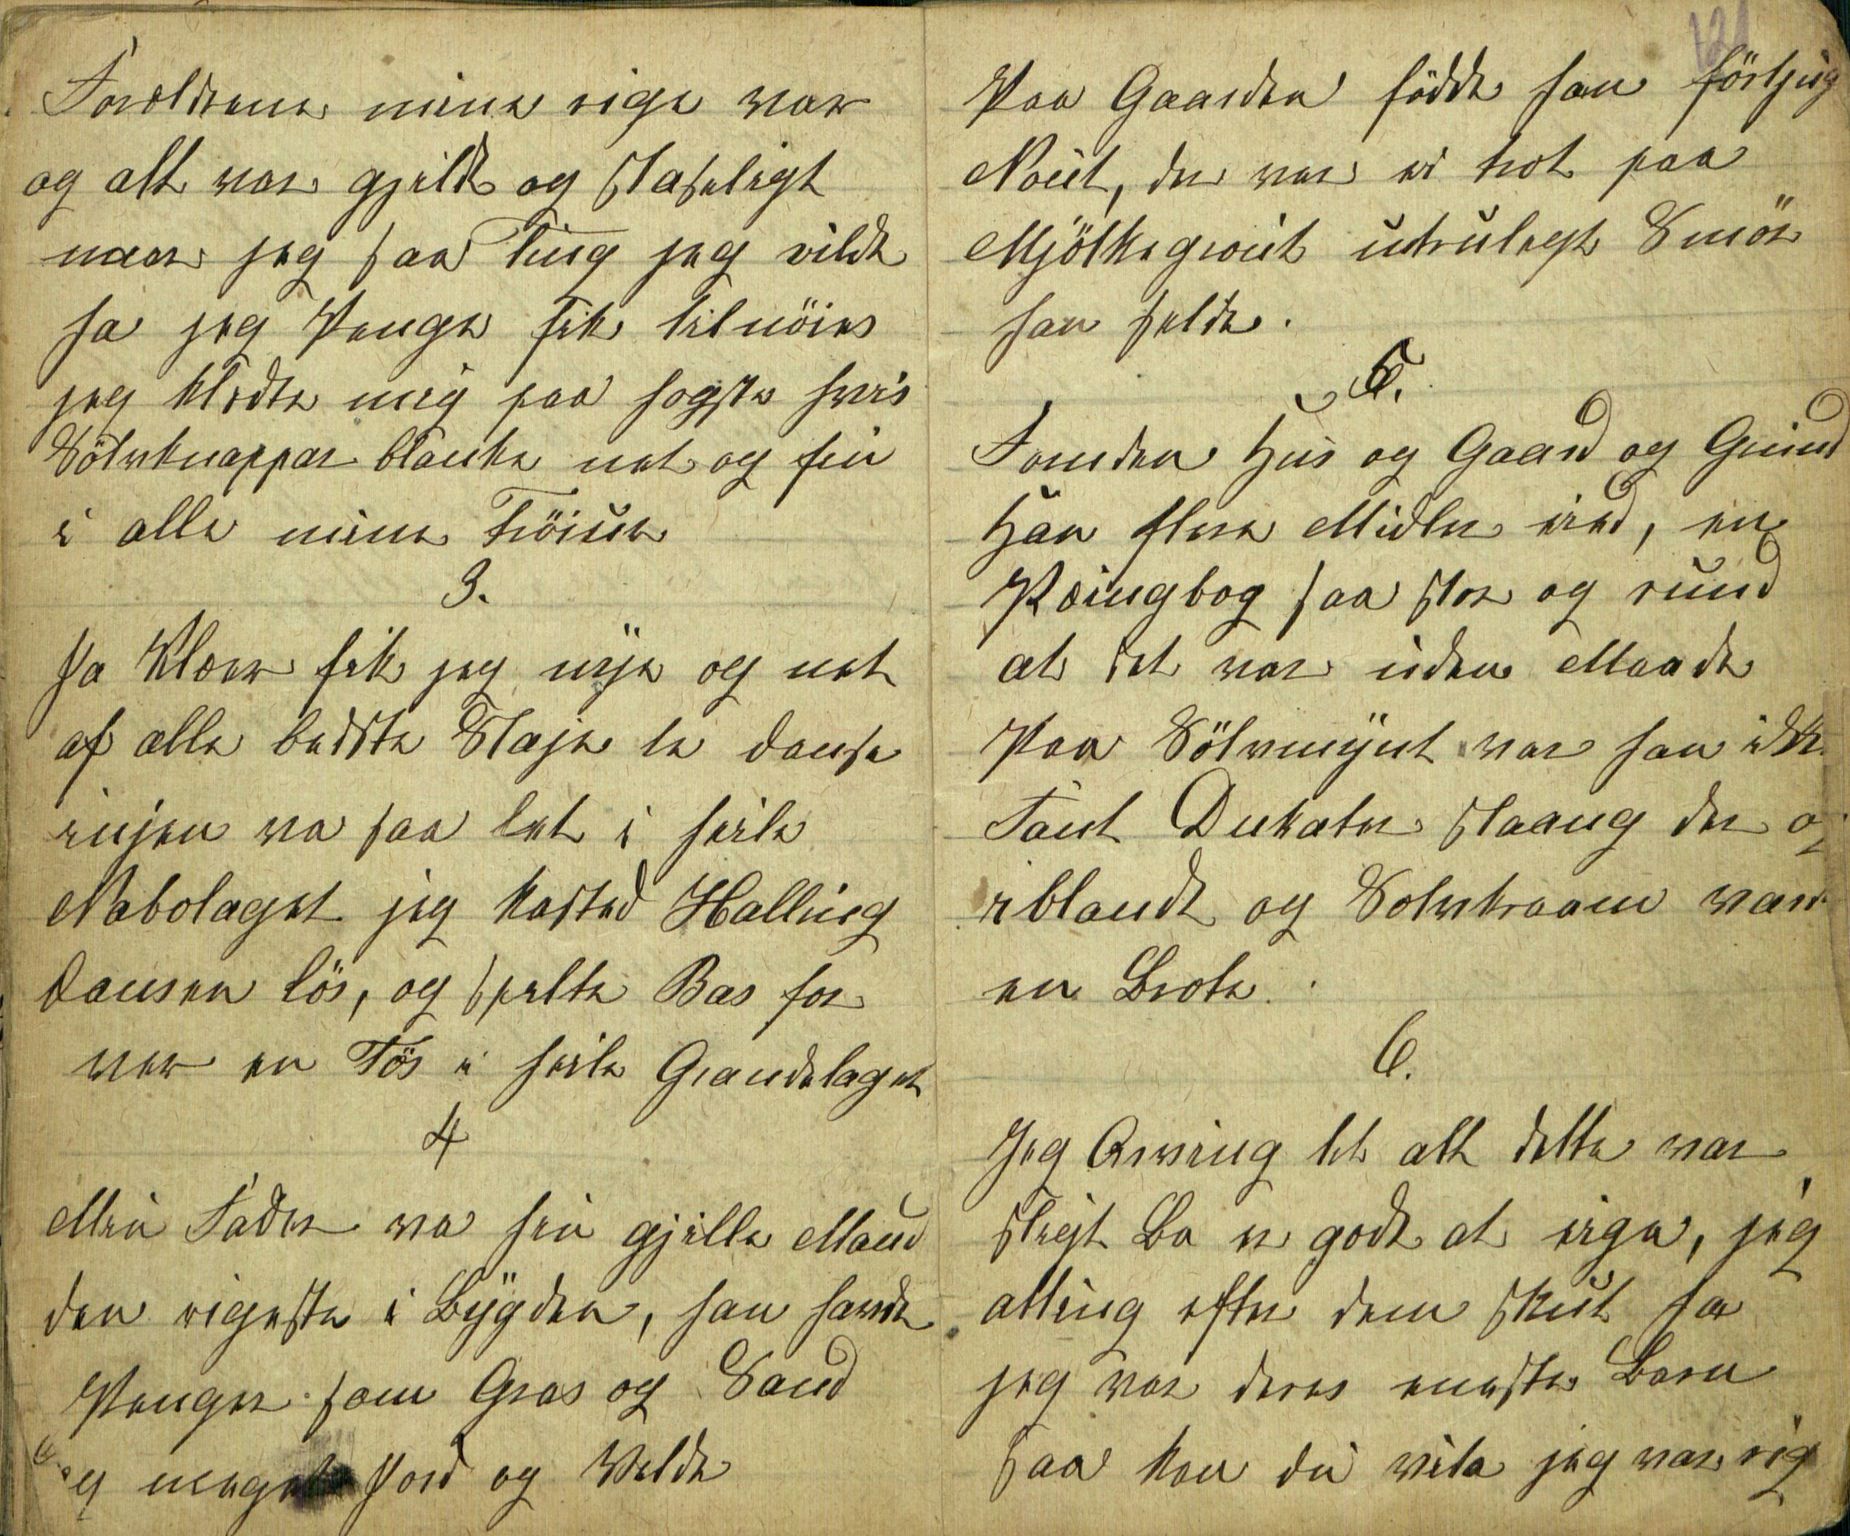 Forældrene mine rige var
og alt var gjildt og staseligt
naar jeg saa Ting jeg vilde
ha jeg Penge fik tilnöies
jeg klædte mig paa hogste hvis
Sölvknappar blanke net og fin
i alle mine Tröiur
3.
Ja Klær fik jeg nye og net
af alle bedste Slaje te danse
injen va saa let i heile
Nabolaget jeg kasted Halling
dansen lös, og spelte Bas for
ver en Tös i heile Grandelaget
4
Min Fader va hin gjille Mand
den rigeste i Bygden, han havde
Penger som Gras og Sand
og meget Jord og Velde
121
Paa Gaarden födde han förtjug
Nout, der var ei trot paa
Mjölkegrout utrulegt Smör
han selde.
5.
Foruden Hus og Gaard og Grund
Han flere Midler eied, en
Pæingbog saa stor og rund
at det var uden Maade
Paa Sölvmynt var han ikke
Fant Dukater staang der og
iblandt og Solvkraam var
en Brote.
6.
Jeg Arving til alt dette var
sligt Ba er godt at eige, jeg
alting efter dem skut ha
jeg var deres eneste Barn
saa kan du vita jeg var rig